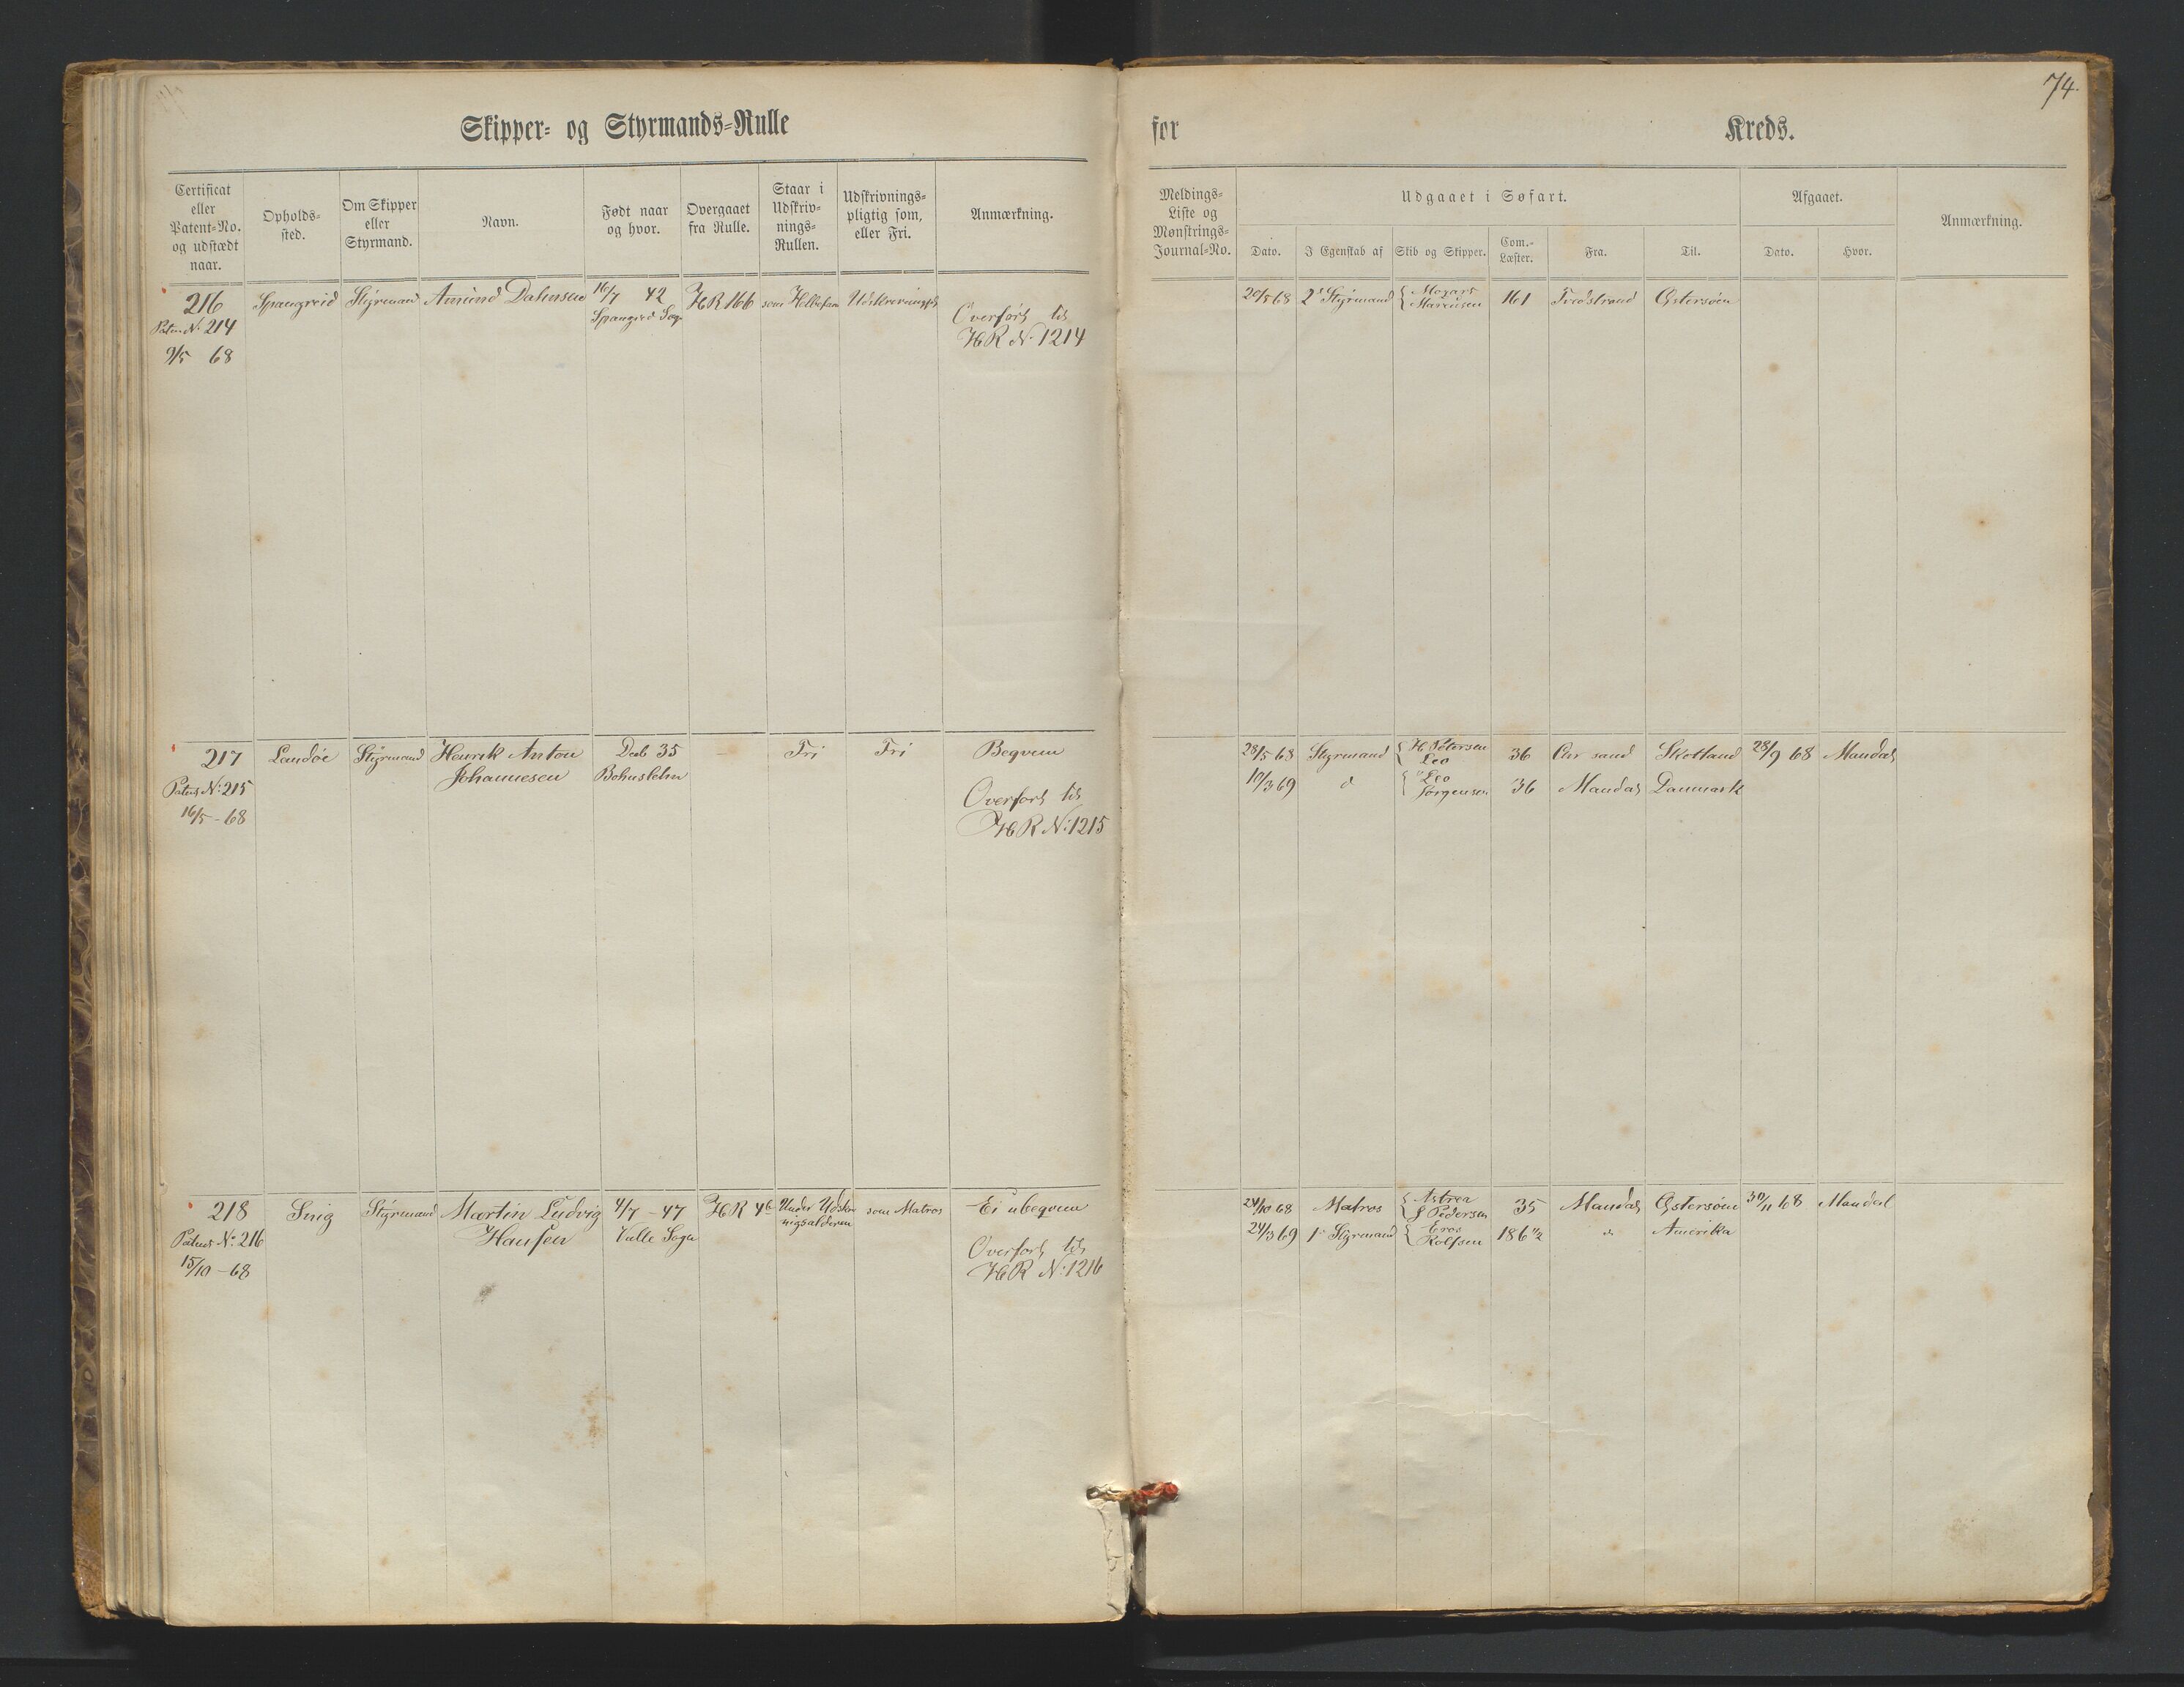 74.
Skipper- og Styrmands-Rulle
for Kreds.
Certificat eller Patent-No. og udstædt naar.
Opholds-sted.
Om Skipper eller Styrmand.
Navn.
Født naar og hvor.
Overgaaet fra Rulle.
Staar i Udskriv-nings-Rullen.
Udskrivnings-pligtig som, eller Fri.
Anmærkning.
Meldings-Liste og Mønstrings-Journal-No.
Udgaaet i Søfart.
Dato.
I Egenskab af
Skib og Skipper.
Com.-Læster.
Fra.
Til.
Afgaaet.
Dato.
Hvor.
Anmærkning.
216 Spangreid Styrmand Amund Dahnsen 16/7 42 HR 166 som
Patent N: 214 Spangreid Sogn Overført til
9/5 68 HR N. 1214
20/5 68 2d Styrmand Mozart 161 Østersøen
Marcusen
217 Landøe Styrmand Henrik Anton Deb 35 — Fri Fri Beqvem
Patent N: 215 Johannesen Bohuslehn
16/5 - 68 Overført til
HR N: 1215
28/5 68 Styrmand H Petersen 36 Chr sand Skotland 28/9 68 Mandal
Leo
10/3 69 d Leo 36 Mandal Danmark
Jørgensen
218 Snig Styrmand Martin Ludvig 4/7 - 47 HR 46 Under Udskriv som Matros Ei ubeqvem
Patent N: 216 Hansen Valle Sogn nigsalderen
15/10 - 68 Overført til
HR N: 1216
24/10 68 Matros Astrea 35 Mandal Østersøen 30/11 68 Mandal
J Pedersen
24/3 69 1e Styrmand Eros 186 1/2 " Amerika
Rolfsen